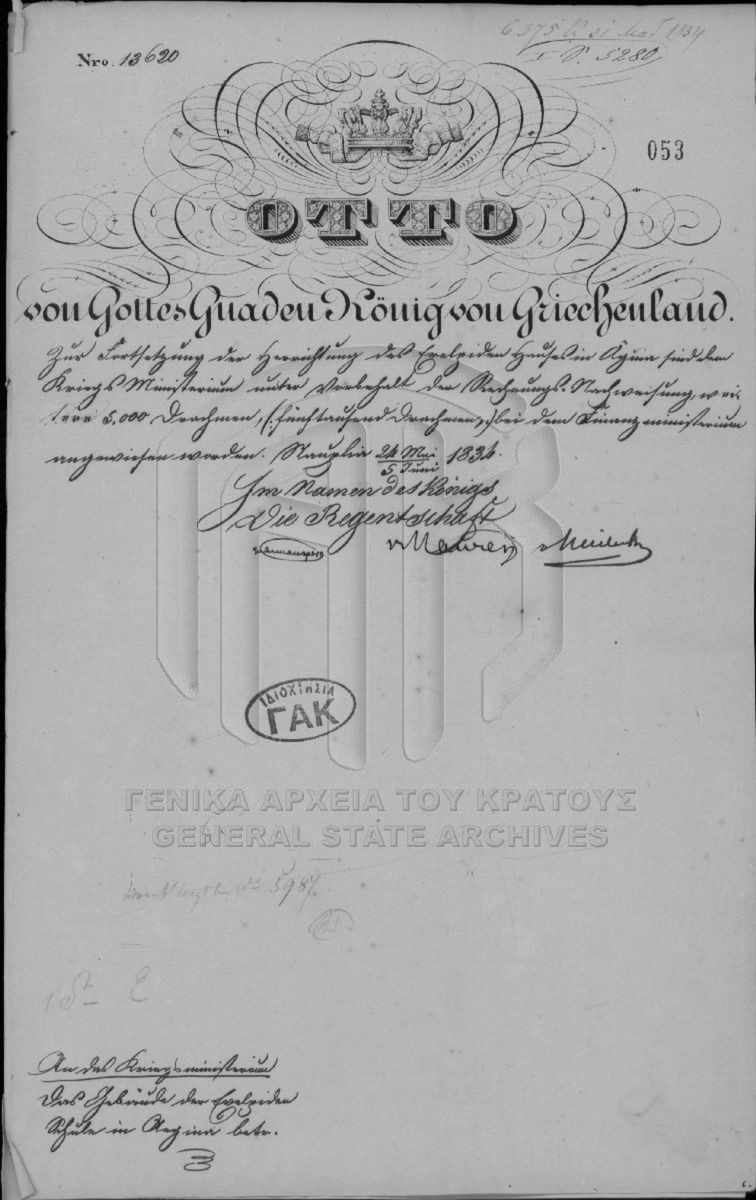 Nro. 13620
6375 31 Mai 1834
5280
053
OTTO
von Gottes Gnaden König von Griechenland.
Zur Fortsetzung der Herrichtung des Evelpiden Hauses in Ägina sind dem
Kriegs Ministerium unter Vorbehalt der Rechnungs-Nachweisung, wei-
tere 5,000 Drachmen, (:fünftausend Drachmen,:) bei dem Finanzministerium
angewiesen worden. Nauplia 24 Mai / 5 Juni 1834.
Im Namen des Königs
Die Regentschaft
v Maurer
ΙΔΙΟΚΤΗΣΙΑ
ΓΑΚ
ΓΕΝΙΚΑ ΑΡΧΕΙΑ ΤΟΥ ΚΡΑΤΟΥΣ
GENERAL STATE ARCHIVES
5987.
An das Kriegsministerium
Das Gebäude der Evelpiden
Schule in Aegina betr.